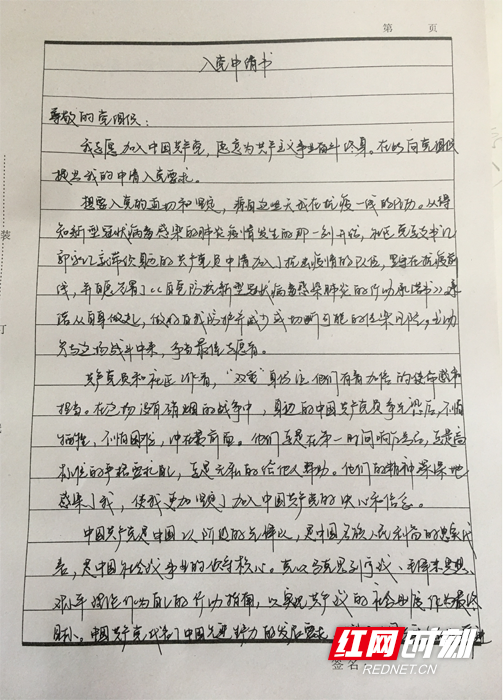 第 页
入党申请书
尊敬的党组织：
我志愿加入中国共产党，愿意为共产主义事业奋斗终身。在此向党组织
提出我的申请入党要求。
想要入党的迫切和坚定，源自这些天我在抗疫一线的行动。从得
知新型冠状病毒感染的肺炎疫情发生的那一刻开始，社区党总支书记
带领的共产党员申请加入了抗击疫情的队伍，坚守在抗疫前
线，并自愿签署了《自觉防抗新型冠状病毒感染肺炎的行动承诺书》承
诺从自身做起，做好自我防护并减少或切断可能的传染风险，主动
参与这场战斗中来，争当最佳志愿者。
共产党员和社区工作者，“双重”身份让他们有着加倍的使命感和
担当。在这场没有硝烟的战争中，身边的中国共产党员争先恐后，不怕
牺牲，不怕困难，冲在最前面。他们总是在第一时间响应号召，总是高
标准的严格要求自己，总是无私的给他人帮助。他们的精神深深地
感染了我，使我更加坚定了加入中国共产党的决心和信念。
中国共产党是中国工人阶级的先锋队，是中国各族人民利益的忠实代
表，是中国社会主义事业的领导核心。党以马克思列宁主义、毛泽东思想、
邓小平理论作为自己的行动指南，以实现共产主义的社会制度作为最终
目标。中国共产党代表了中国先进生产力的发展要求
装
订
签名
红网时刻
REDNET.CN